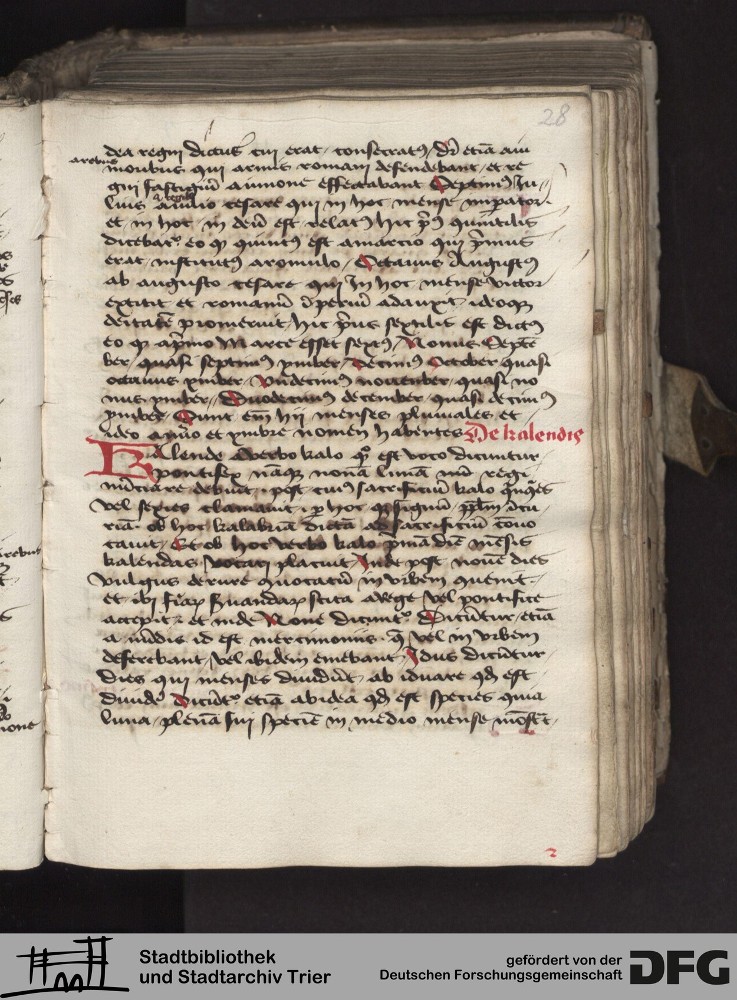 28
dea regni dictus cui erat consecratus / dr etiam aui
arebus
monibus qui armis romani defendebant et re
gni fastigium a iunone effectabant Septimus Ju
lius a iulio cesare qui in hoc mense imperator
et in hoc in deum est relatus hic prius quintilis
dicebatur eo quod quintus est a marcio qui primus
erat institutus a romulo / Octauus Augustus
ab augusto cesare qui In hoc mense victor
extitit et romanum Imperium adauxit ideoque
deitatem promeruit / hic prius sextilis est dictus
eo quod a primo Marce esset sextus / Nonus Septem
ber quasi septimus ymber / Decimus October quasi
octauus ymber Vndecimus nouenber quasi no
nus ymber / Duodecimus december quasi decimus
ymber Sunt enim hii menses pluuiales et
ideo a nuero et ymbre nomen habentes De kalendis
Kalende a verbo kalo quod est voco dicuntur
pontifex namque nonam lunam regi
nunciare debuit post cuius sacrificium kalo quinquies
vel sexies clamauit
riam ob hoc kalabriam dictam ad sacrificium conuo
cauit Et ob hoc verbo kalo primam diem mensis
kalendas vocari placuit Inde post nouem dies
vulgus de rure quocatum in vrbem quenit
et ibi scita a rege vel pontifice
accepit et inde None dicuntur Dicuntur etiam
a nundis id est mercimoniis que vel in vrbem
deferebant vel ibidem emebant Idus dicuntur
dies qui menses diuidunt ab iduare quod est
diuidere dicuntur etiam ab idea quod est species quia
luna plenam sui speciem in medio mense
2
Stadtbibliothek
und Stadtarchiv Trier
gefördert von der
Deutschen Forschungsgemeinschaft
DFG